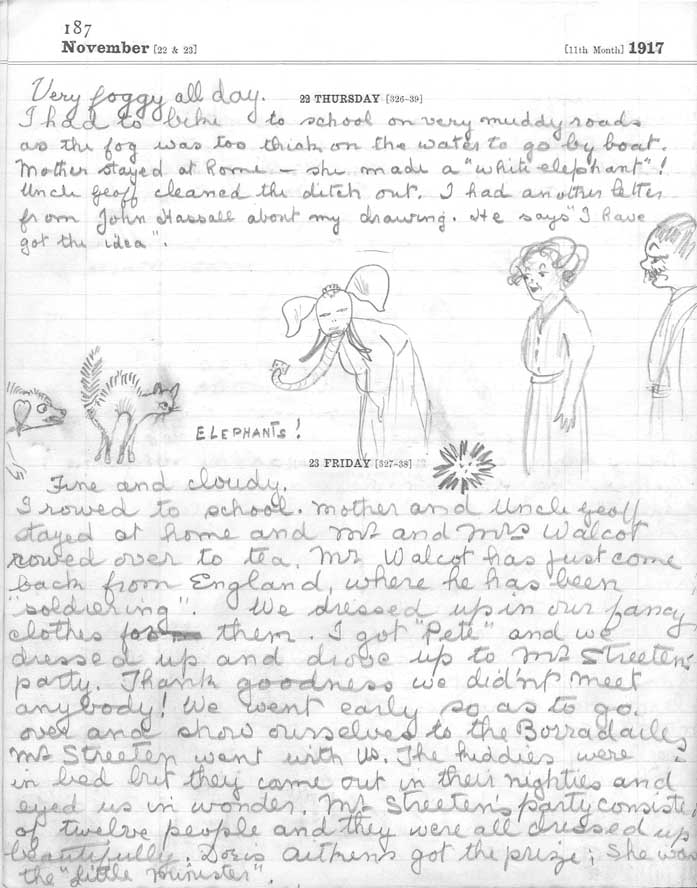 187
November [22 & 23] [11th Month] 1917
Very foggy all day. 22 THURSDAY [326-39]
I had to bike to school on very muddy roads
as the fog was too thick on the water to go by boat.
Mother stayed at home – she made a "white elephant"!
Uncle Geoff cleaned the ditch out. I had another letter
from John Hassall about my drawing. He says "I have
got the idea".
ELEPHANTS!
23 FRIDAY [327-38]
Fine and cloudy.
I rowed to school. Mother and Uncle Geoff
stayed at home and Mr and Mrs Walcot
rowed over to tea. Mr Walcot has just come
back from England, where he has been
"soldiering". We dressed up in our fancy
clothes for them. I got "Pete" and we
dressed up and drove up to Mr Streeten's
party. Thank goodness we did'nt meet
anybody! We went early so as to go
over and show ourselves to the Borradailes
Mr Streeten went with us. The kiddies were
in bed but they came out in their nighties and
eyed us in wonder. Mr Streeten's party consisted
of twelve people and they were all dressed up
beautifully. Doris Aitkens got the prize; She was
the "Little Minister".